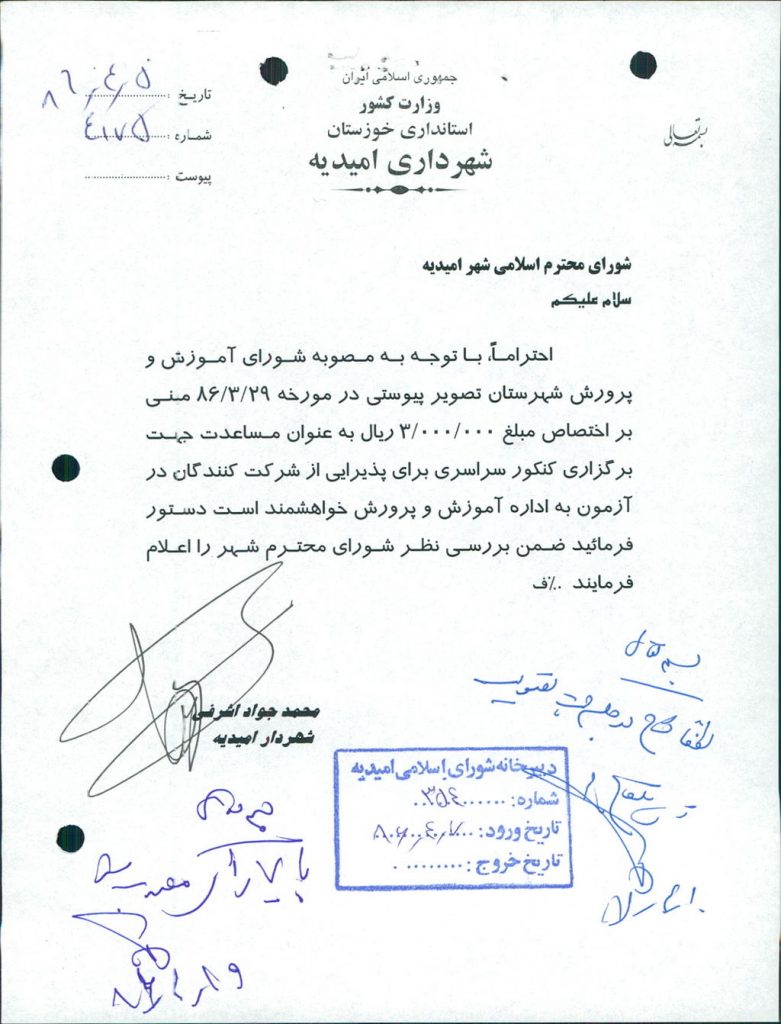 بسمه تعالی
جمهوری اسلامی ایران
وزارت کشور
استانداری خوزستان
شهرداری امیدیه
تاریخ : ۸۶٫۴٫۵
شماره : ۴۱۷۵
پیوست :
شورای محترم اسلامی شهر امیدیه
سلام علیکم
احتراماً، با توجه به مصوبه شورای آموزش و
پرورش شهرستان تصویر پیوستی در مورخه ۸۶/۳/۲۹ مبنی
بر اختصاص مبلغ ۳/۰۰۰/۰۰۰ ریال به عنوان مساعدت جهت
برگزاری کنکور سراسری برای پذیرایی از شرکت کنندگان در
آزمون به اداره آموزش و پرورش خواهشمند است دستور
فرمائید ضمن بررسی نظر شورای محترم شهر را اعلام
فرمایند ٪.ف
محمد جواد اشرفی
شهردار امیدیه
بسمه تعالی
لطفا طرح در جلسه جهت تصویب
دبیرخانه شورای اسلامی امیدیه
شماره: ۳۵۴
تاریخ ورود:
تاریخ خروج: